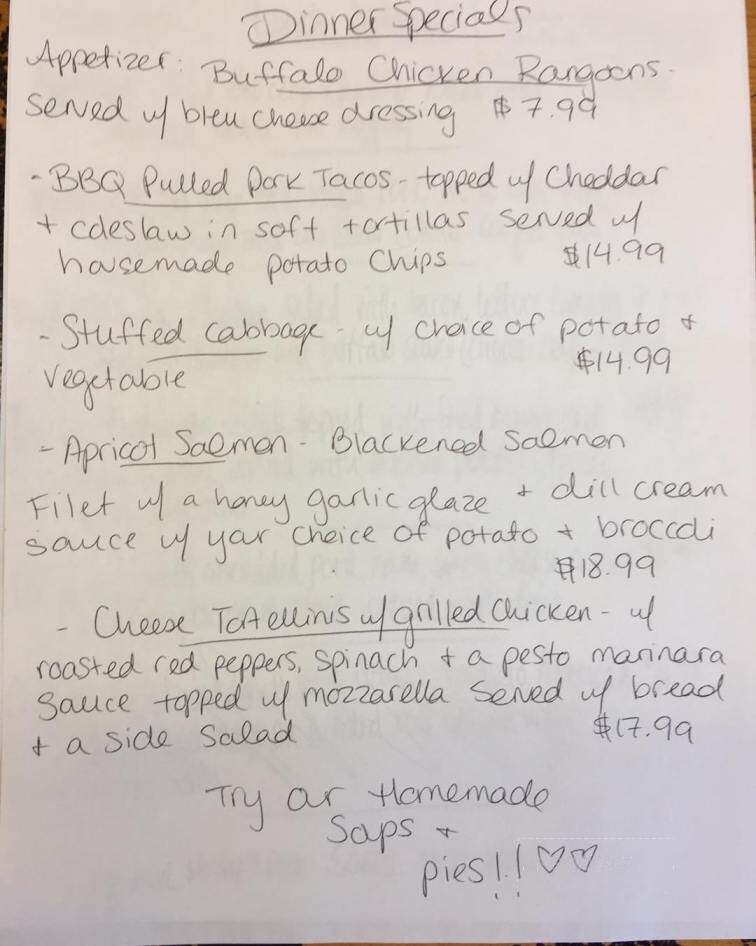 Dinner Specials
Appetizer: Buffalo Chicken Rangoons -
served w/ bleu cheese dressing $7.99
- BBQ Pulled Pork Tacos - topped w/ Cheddar
+ coleslaw in soft tortillas served w/
housemade potato Chips $14.99
- Stuffed cabbage - w/ choice of potato +
vegetable $14.99
- Apricot Salmon - Blackened Salmon
Filet w/ a honey garlic glaze + dill cream
sauce w/ your choice of potato + broccoli
$18.99
- Cheese Tortellinis w/ grilled Chicken - w/
roasted red peppers, spinach + a pesto marinara
sauce topped w/ mozzarella served w/ bread
+ a side salad $17.99
Try our Homemade
Soups +
pies!! ♡♡